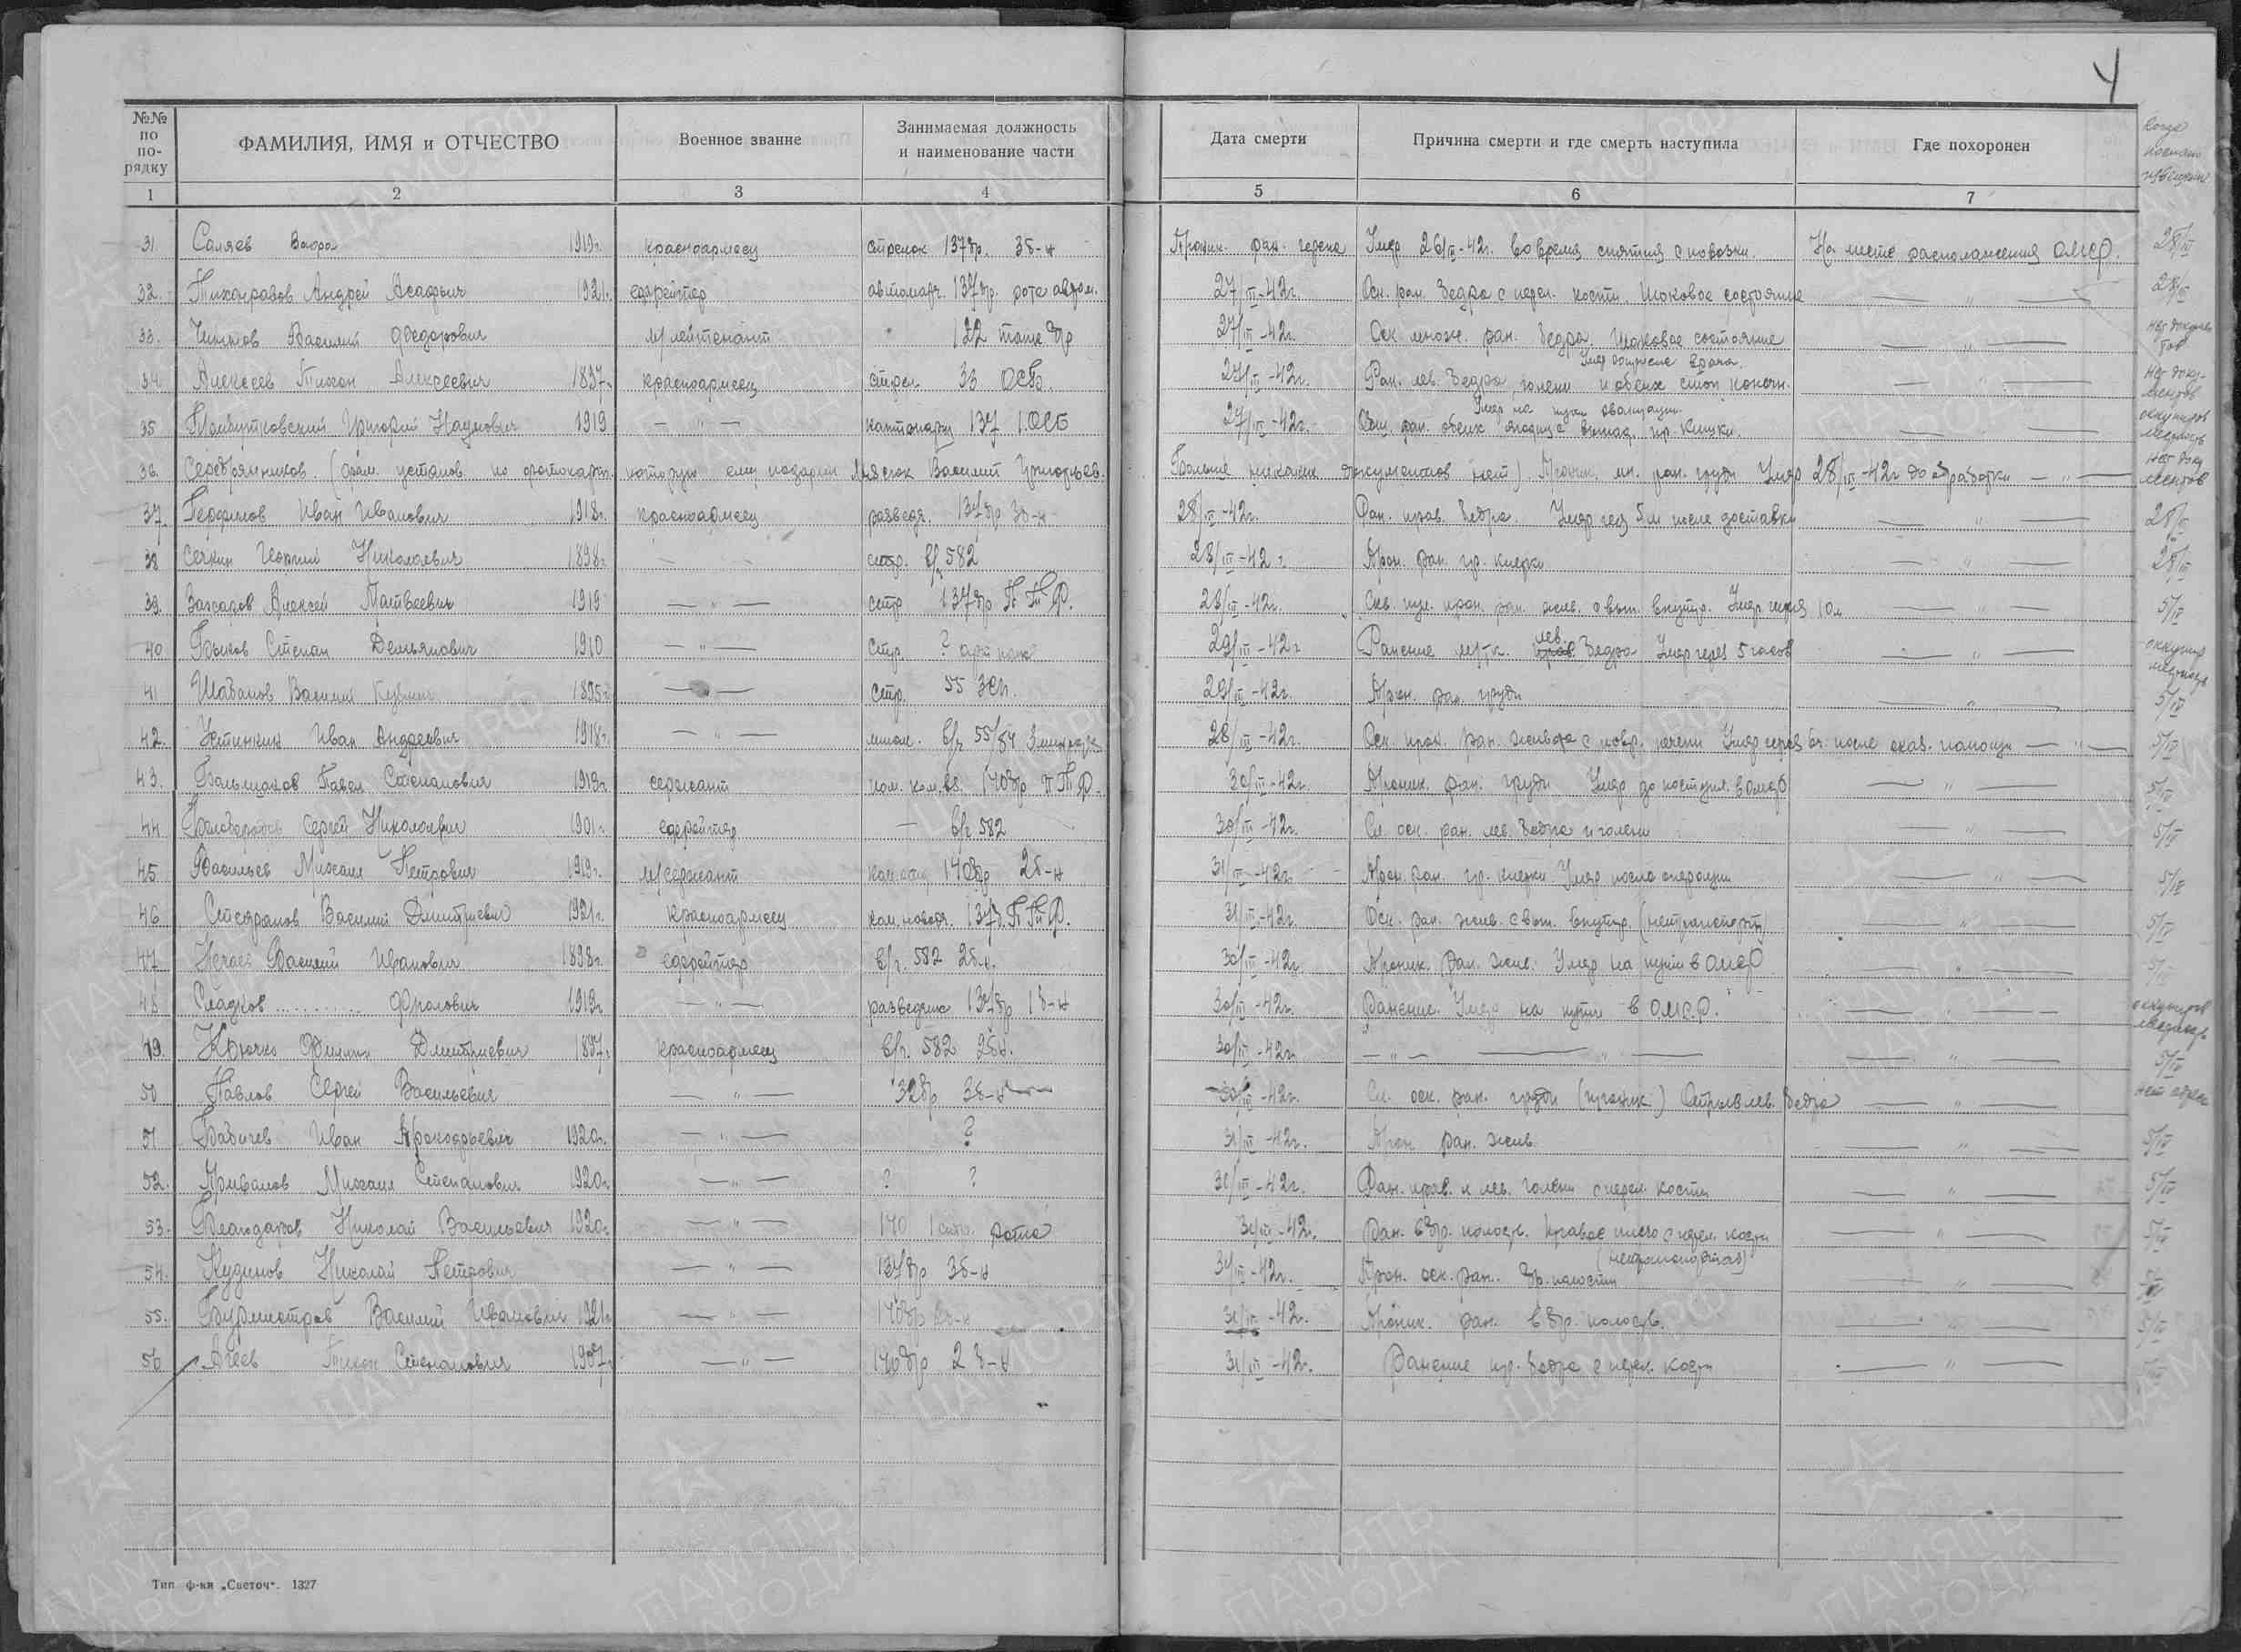 4
№№ по по-рядку
ФАМИЛИЯ, ИМЯ и ОТЧЕСТВО
Военное звание
Занимаемая должность и наименование части
Дата смерти
Причина смерти и где смерть наступила
Где похоронен
Когда послано извещение
1 2 3 4 5 6 7
31. Саляев 1919г. красноармеец стрелок 137 бр. 3 б-н Проник. ран. черепа Умер 26/III-42г. во время снятия с повозки. На месте расположения ОМСР. 28/III
32. Тихонравов Андрей Асафьич 1921г. ефрейтор автоматч. 137 бр. рота автом. 27/III-42г. Оск. ран. бедра с пер. кости. Шоковое состояние — " — 28/III
33. Чинков Василий Федорович мл/лейтенант " 122 танк бр 27/III-42г. Оск. множ. ран. бедра. Шоковое состояние — " — нет документов
34. Алексеев Тихон Алексеевич 1897г. красноармеец стрел. 33 ОСБ. 27/III-42г. Ран. лев. бедра, голени и обеих стоп конечн. — " — нет документов
35 Григорий Наумович 1919 — " — 137 1 ОСБ 27/III-42г. ран. обеих ягодиц с выпад. пр. кишки. Умер на пути эвакуации — " — оккупиров местность
36. Серебрянников. (фам. установ. по фотокарт. которую ему подарил Василий Григорьев. Больше никаких документов нет) Проник. ран. груди Умер 28/III-42г до обработки — " — нет документов
37. Иван Иванович 1918г. красноармеец разведч. 137 бр 3 б-н 28/III-42г. Ран. прав. бедра. Умер чер 5 м после доставки — " — 28/III
38 Сечкин Георгий Николаевич 1898г. стр. в/ч 582 28/III-42г. Прон. ран. гр. клетки — " — 28/III
39. Захаров Алексей Матвеевич 1919 — " — стр 137 бр 28/III-42г. ран. жив. с вып. внутр. Умер через 10м — " — 5/IV
40 Быков Степан Демьянович 1910 — " — стр. ? арт полк 29/III-42г Ранение мягк. лев. бедра Умер через 5 часов — " — оккупир местность
41 Шабанов Василий Кузьмич 1895г — " — стр. 55 29/III-42г. Прон. ран. груди — " — 5/IV
42. Устинкин Иван Андреевич 1918г. — " — в/ч 55/84 28/III-42г. Оск. прон. ран. живота с повр. печени Умер через 6ч. после оказ. помощи — " — 5/IV
43. Большаков Павел Степанович 1919г. сержант пом. ком. вз. 140 бр 30/III-42г. Проник. ран. груди Умер до поступл. в ОМСР — " — 5/IV
44. Белобородов Сергей Николаевич 1901г. ефрейтор — в/ч 582 30/III-42г. Сл. оск. ран. лев. бедра и голени — " — 5/IV
45 Васильев Михаил Петрович 1919г. мл/сержант ком. отд 140 бр 2 б-н 31/III-42г. Прон. ран. гр. клетки Умер после операции — " — 5/IV
46 Стефанов Василий Дмитриевич 1921г. красноармеец 137 31/III-42г. Оск. ран. жив. с вып. внутр. (нетранспорт) — " — 5/IV
47 Нечаев Василий Иванович 1898г. ефрейтор в/ч. 582 2 б-н. 30/III-42г. Проник. ран. жив. Умер на пути в ОМСР — " — 5/IV
48 Сладков ........... Фролович 1919г — " — разведчик 137 бр 1 б-н 30/III-42г. Ранение. Умер на пути в ОМСР. — " — оккупиров местность
49. Крючко Филипп Дмитриевич 1897г. красноармеец в/ч. 582 2 б-н. 30/III-42г. — " — — " — — " — 5/IV
50 Павлов Сергей Васильевич — " — 32 бр 3 б-н 30/III-42г. Сл. оск. ран. груди (проник.) Отрыв лев. бедра — " — нет адреса
51 Бабичев Иван Прокофьевич 1920г. — " — ? 31/III-42г. Прон ран. жив. — " — 5/IV
52. Приванов Михаил Степанович 1920г. — " — ? ? 31/III-42г. Ран. прав. и лев. голени с перел. кости — " — 5/IV
53. Благодаров Николай Васильевич 1920г. — " — 140 рота 31/III-42г. Ран. в бр. полость. Правое плечо с перел. кости — " — 5/IV
54. Кудинов Николай Петрович — " — 137 бр 3 б-н 31/III-42г. Прон. оск. ран. бр. полости (нетранспортаб) — " —
55. Бурмистров Василий Иванович 1921г — " — 140 бр б-н 31/III-42г. Проник. ран. в бр. полость. — " — 5/IV
56 Агеев Тихон Степанович 1907г — " — 140 бр 2 б-н 31/III-42г. Ранение пр. бедра с перел. кости — " —
Тип ф-ки „Светоч". 1327